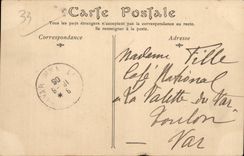 33
Carte Postale
Tous les pays étrangers n'acceptent pas la correspondance au recto.
Se renseigner à la poste.
Correspondance
Adresse
Madame Fille
Café National
à La Valette du Var
Toulon
Var